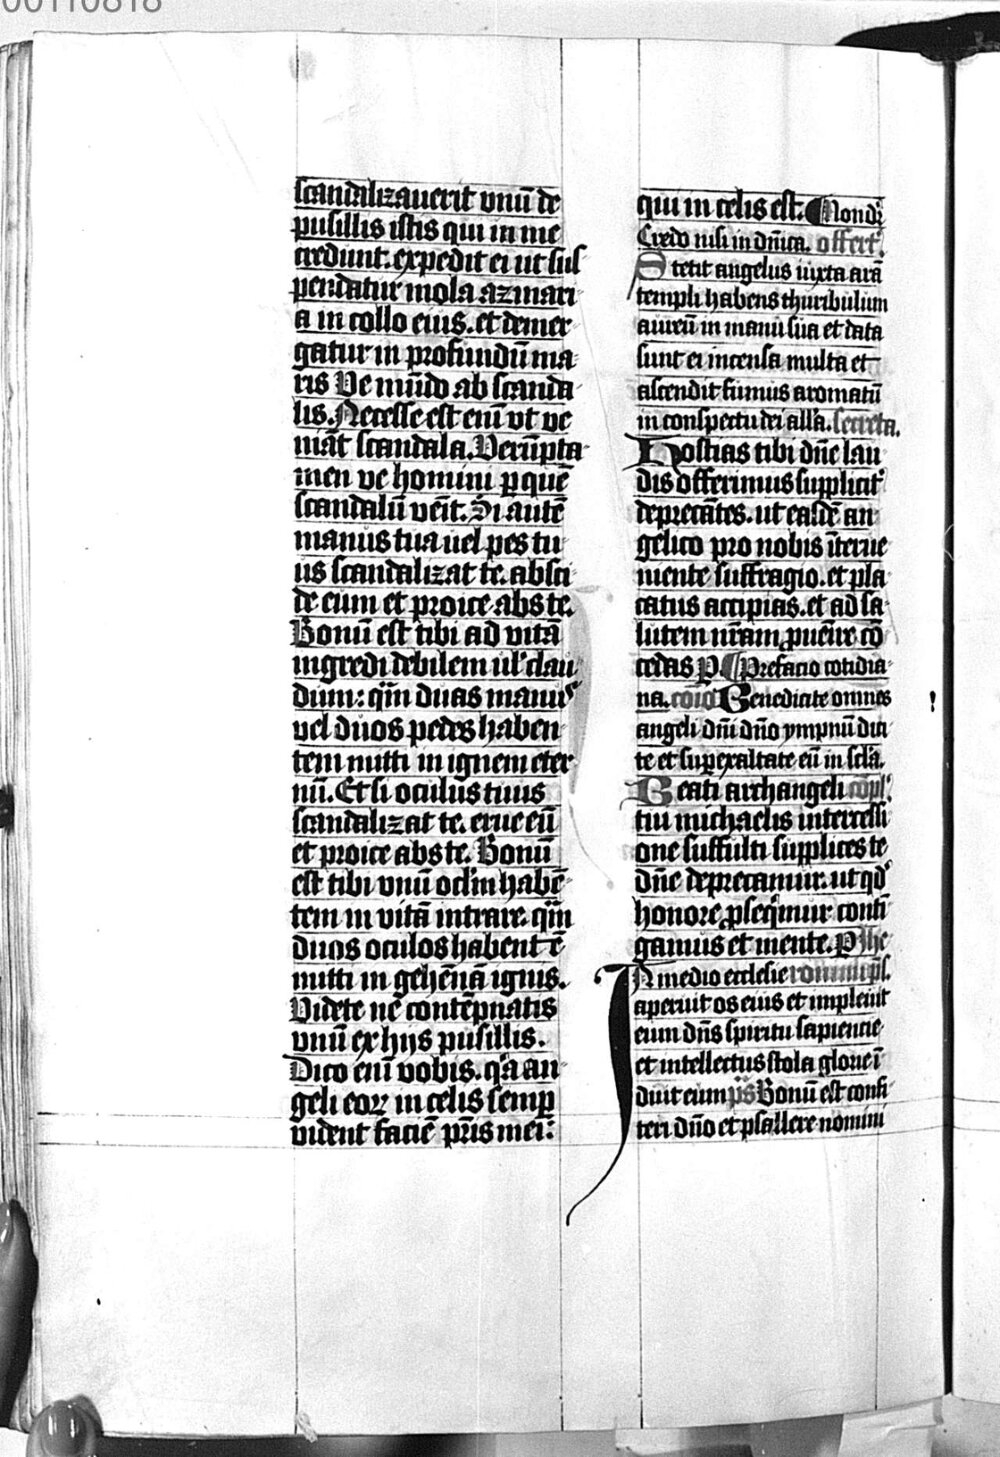 00110818
scandalizauerit vnū de
pusillis istis qui in me
credunt. expedit ei ut sus
pendatur mola azinari
a in collo eius. et demer
gatur in profundū ma
ris Ve mūdo ab scanda
lis. Necesse est eniꝫ vt ve
niāt scandala. Verūpta
men ve homini ꝑ quē
scandalū venit. Si autē
manus tua uel pes tu
us scandalizat te. absci
de eum et proice abs te.
Bonū est tibi ad vitā
ingredi debilem ul' clau
dum: q̄m duas manus
uel duos pedes haben
tem mitti in ignem eter
nū. Et si oculus tuus
scandalizat te. erue eū
et proice abs te. Bonū
est tibi vnū oclm̄ habē
tem in vitā intrare. q̄m
duos oculos habentē
mitti in gehennā ignis.
Videte ne contēpnatis
vnū ex hijs pusillis.
Dico eni vobis. q̄a an
geli eoꝝ in celis semꝑ
vident faciē pr̄is mei:
qui in celis est. Non dꝛ
Credo nisi in dn̄ica. offert'.
Stetit angelus iuxta arā
templi habens thuribulum
aureū in manu sua et data
sunt ei incensa multa et
ascendit fumus aromatū
in conspectu dei all'a. secreta.
Hostias tibi dn̄e lau
dis offerimus supplicit'
deprecātes. ut easdē an
gelico pro nobis īterue
niente suffragio. et pla
catus accipias. et ad sa
lutem nr̄am ꝓuenire cō
cedas P Prefacio cotidia
na. cōio Benedicite omnes
angeli dn̄i dn̄o ympnū dici
te et suꝑexaltate eū in scl'a.
Beati archangeli cōpl'.
tui michaelis intercessi
one suffulti supplices te
dn̄e deprecamur. ut qd'
honore ꝓseq̄mur contī
gamus et mente. P Ihe
In medio ecclesie ronimi ps.
aperuit os eius et impleuit
eum dn̄s spiritu sapientie
et intellectus stola glorie ī
duit eum ps Bonū est confi
teri dn̄o et psallere nomini